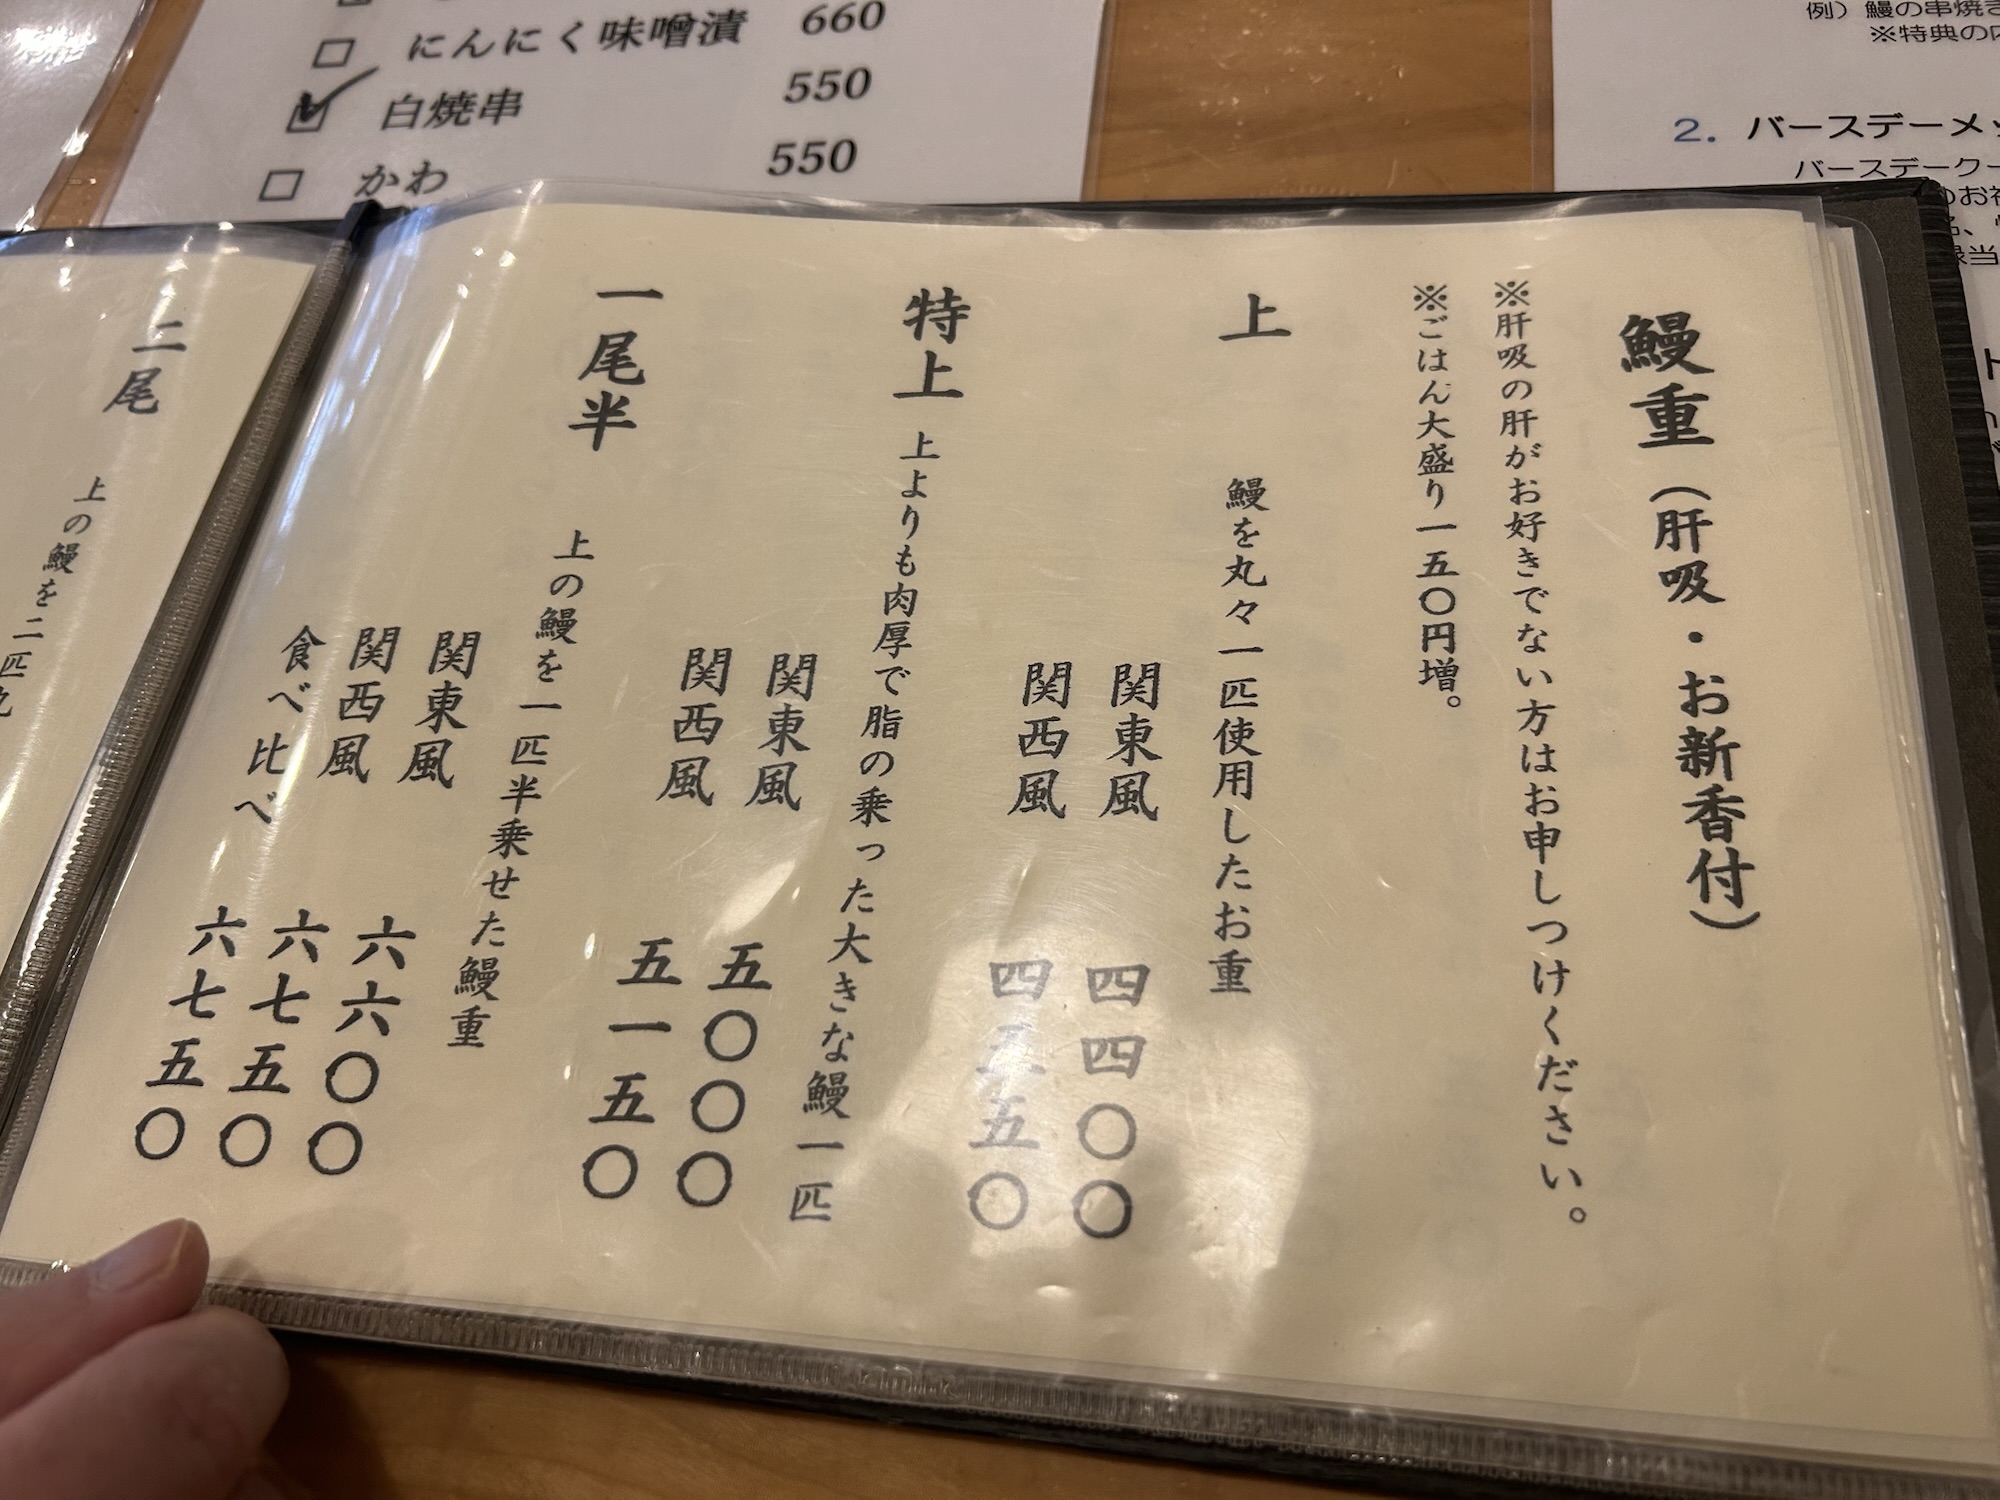 にんにく味噌漬 660
白焼串 550
かわ 550
例）鰻の串焼き
※特典の内
2. バースデーメッ
バースデークー
鰻重（肝吸・お新香付）
※肝吸の肝がお好きでない方はお申しつけください。
※ごはん大盛り一五〇円増。
上 鰻を丸々一匹使用したお重
関東風 四四〇〇
関西風 四五五〇
特上 上よりも肉厚で脂の乗った大きな鰻一匹
関東風 五〇〇〇
関西風 五一五〇
一尾半 上の鰻を一匹半乗せた鰻重
関東風 六六〇〇
関西風 六七五〇
食べ比べ 六七五〇
二尾 上の鰻を二匹